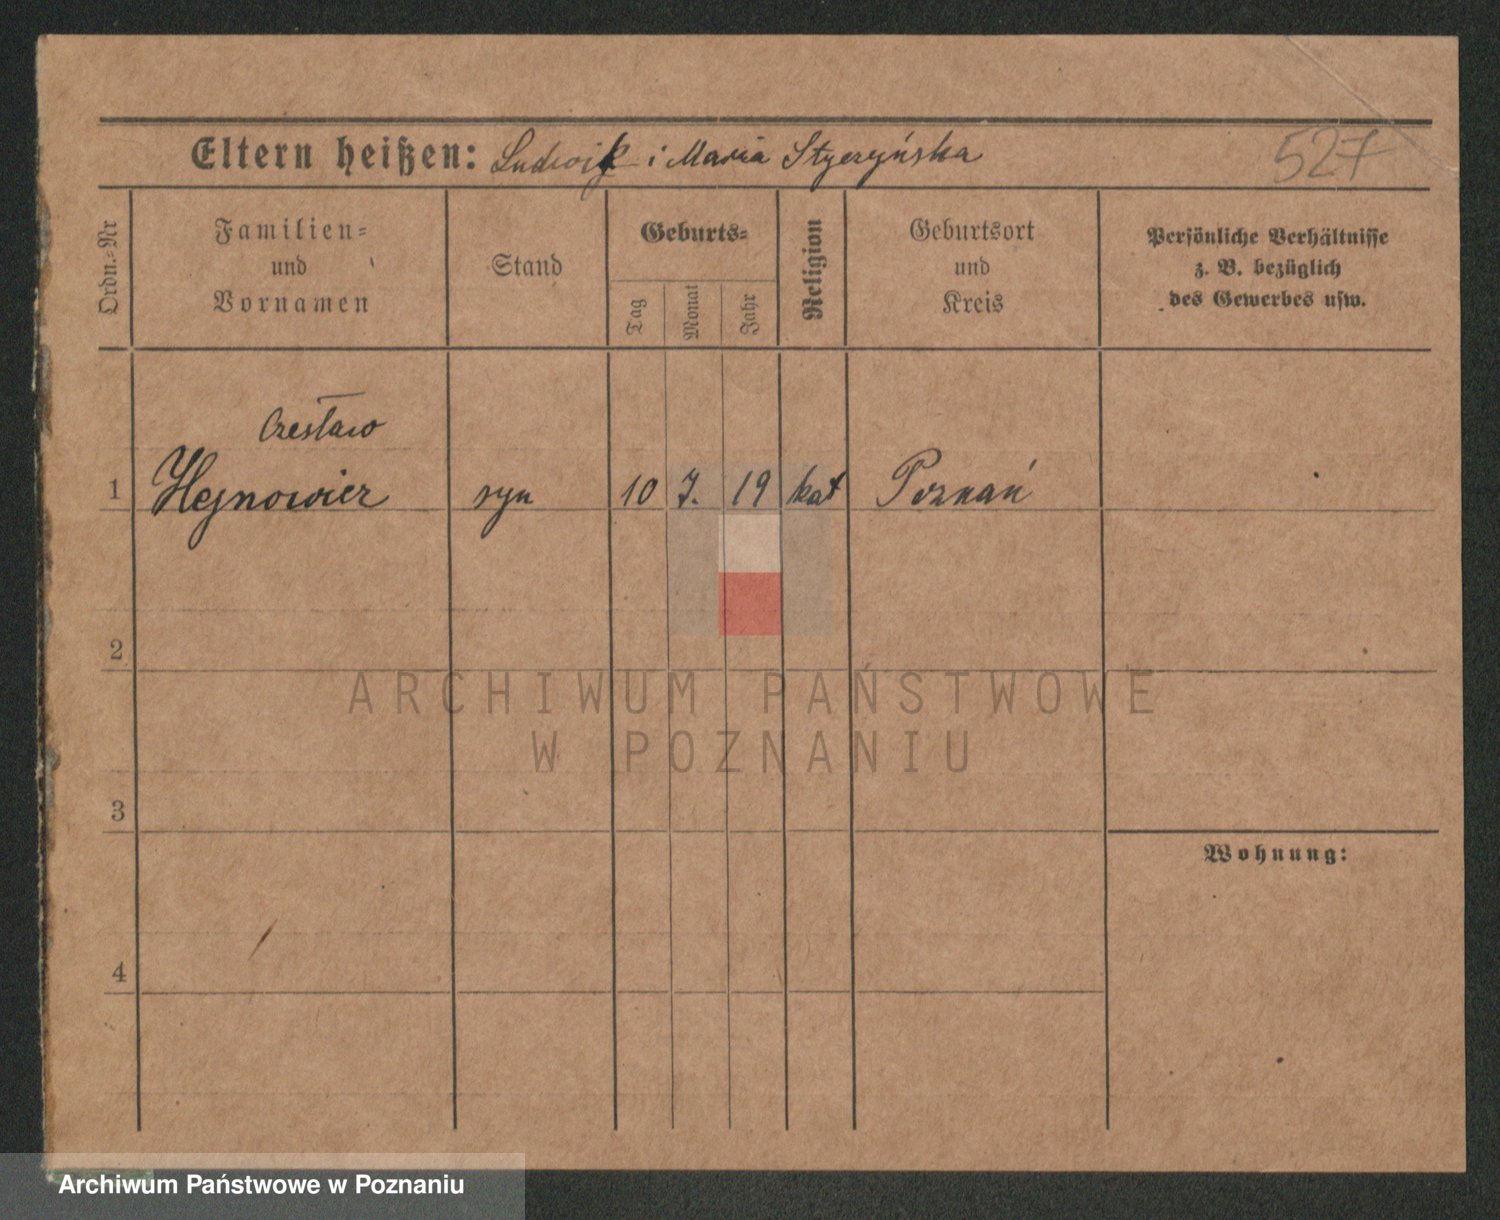 Eltern heißen: Ludwik i Maria Styczyńska
527
Ordn.-Nr
Familien-
und
Vornamen
Stand
Geburts-
Tag
Monat
Jahr
Religion
Geburtsort
und
Kreis
Persönliche Verhältnisse
z. B. bezüglich
des Gewerbes usw.
Czesław
1 Hejnowicz syn 10 7. 19 kat Poznań
2
ARCHIWUM PAŃSTWOWE
W POZNANIU
3
Wohnung:
4
Archiwum Państwowe w Poznaniu